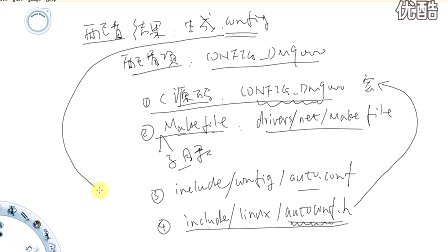 优酷
配置结果:生成.config
配置项:CONFIG_DM9000
① C源码 CONFIG_DM9000 宏
② Makefile: drivers/net/Makefile
子目录
③ include/config/auto.conf
④ include/linux/autoconf.h